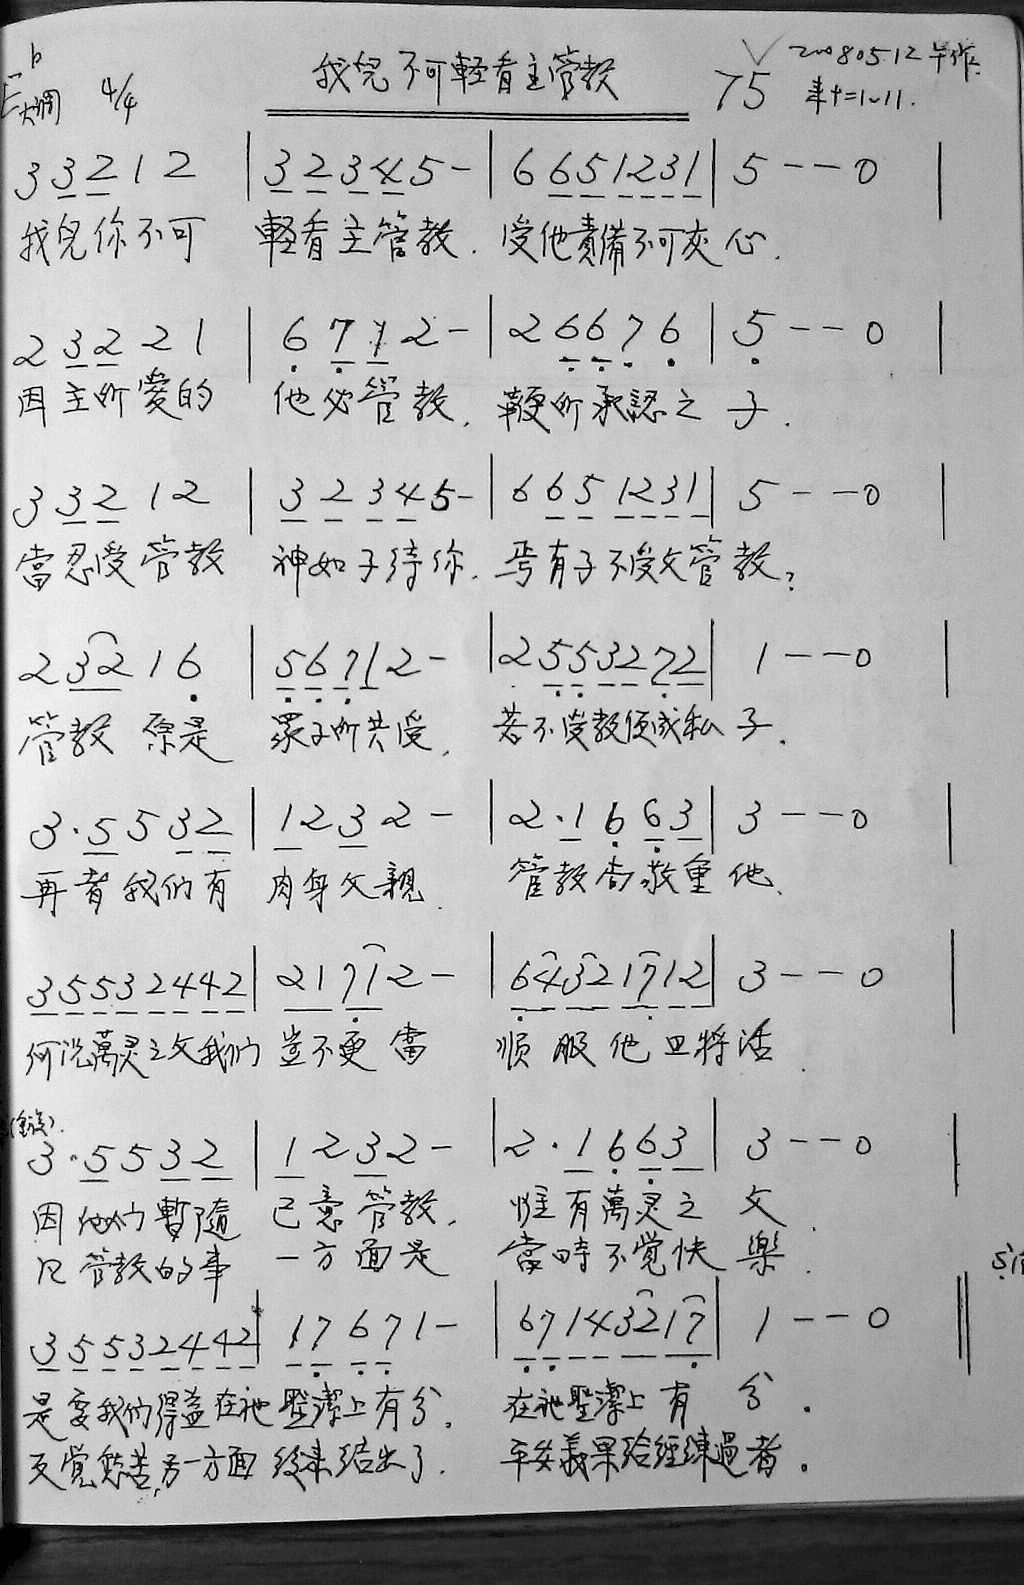 b
大調 4/4 我兒不可輕看主管教 75 20080512 午作
來十二1~11.
3 3 2 1 2 | 3 2 3 4 5 - | 6 6 5 1 2 3 1 | 5 - - 0 |
我兒你不可 輕看主管教. 受他責備不可灰心.
2 3 2 2 1 | 6 7 1 2 - | 2 6 6 7 6 | 5 - - 0 |
因主所愛的 他必管教, 鞭所承認之子.
3 3 2 1 2 | 3 2 3 4 5 - | 6 6 5 1 2 3 1 | 5 - - 0 |
當忍受管教 神如子待你. 焉有子不受父管教?
2 3 2 1 6 | 5 6 7 1 2 - | 2 5 5 3 2 7 2 | 1 - - 0 |
管教原是 眾子所共受, 若不受教便成私子.
3 · 5 5 3 2 | 1 2 3 2 - | 2 · 1 6 6 3 | 3 - - 0 |
再者我们有 肉身父親. 管教尚敬重他.
3 5 5 3 2 4 4 2 | 2 1 7 1 2 - | 6 4 3 2 1 7 1 2 | 3 - - 0 |
何况萬灵之父我们 豈不更當 順服他且將活
3 · 5 5 3 2 | 1 2 3 2 - | 2 · 1 6 6 3 | 3 - - 0 |
因他们暫隨 己意管教, 惟有萬灵之父.
凡管教的事 一方面是 當時不覚快樂.
3 5 5 3 2 4 4 2 | 1 7 6 7 1 - | 6 7 1 4 3 2 1 7 | 1 - - 0 ‖
是要我们得益在祂聖潔上有分. 在祂聖潔上有分.
反覚愁苦,另一方面後來結出了. 平安義果给經練過者.